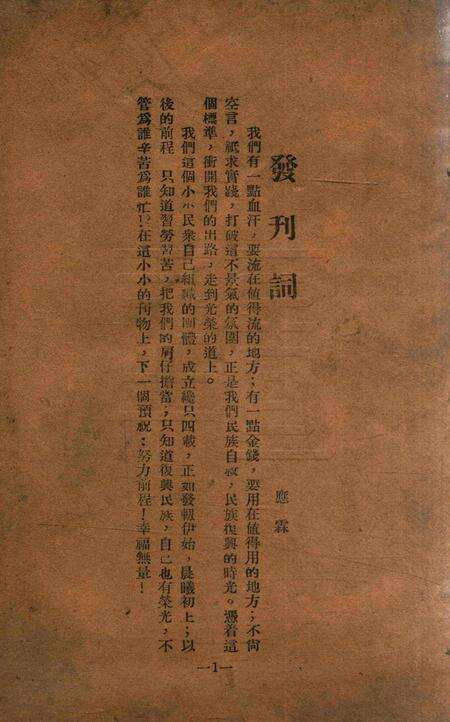 發刊詞
應霖
我們有一點血汗，要流在值得流的地方；有一點金錢，要用在値得用的地方；不尙
空言，祗求實踐，打破這不景氣的氛圍，正是我們民族自救，民族復興的時光。憑着這
個標準，衝開我們的出路，走到光榮的道上。
我們這個小小民衆自己組織的團體，成立纔只四載，正如發軔伊始，晨曦初上；以
後的前程　只知道習勞習苦，把我們的肩仔擔當；只知道復興民族，自己也有榮光，不
管爲誰辛苦爲誰忙！在這小小的刊物上，下一個預祝：努力前程！幸福無量！
—1—